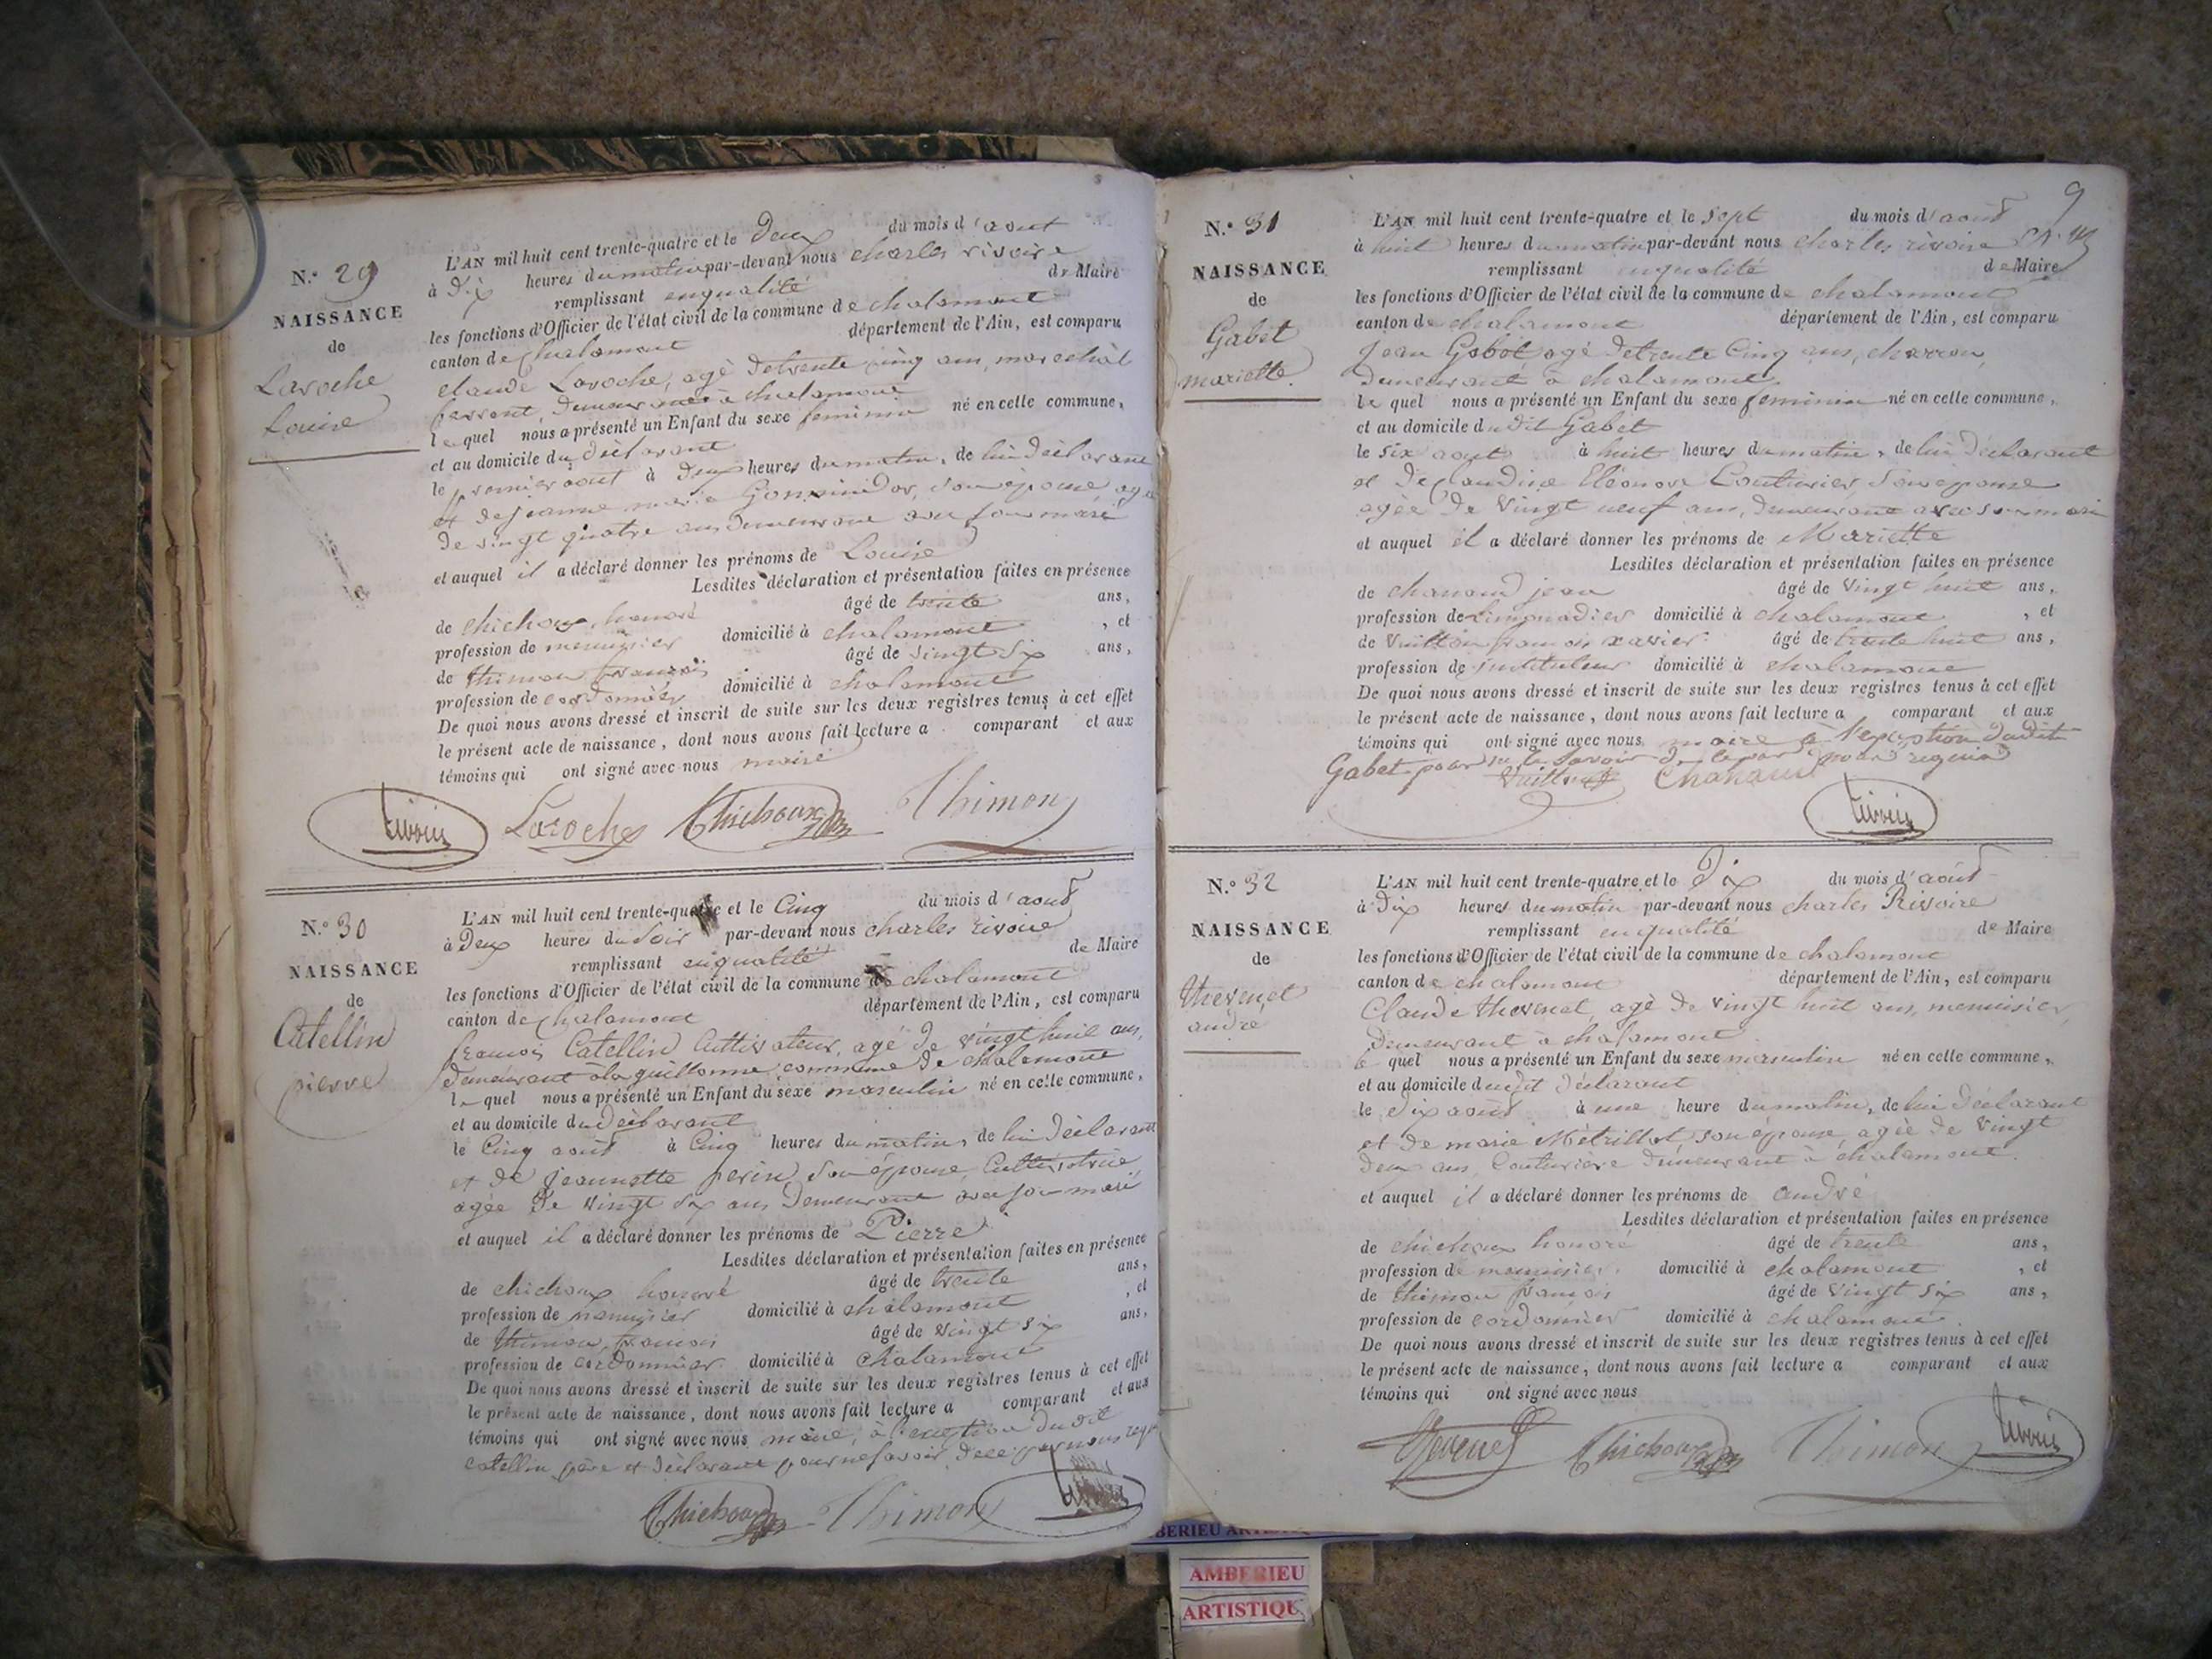 N.° 29
NAISSANCE
de
Laroche
Louise
L'AN mil huit cent trente-quatre et le Deux du mois d'aout
à Dix heures du matin par-devant nous charles rivoire
remplissant en qualité de Maire
les fonctions d'Officier de l'état civil de la commune de chalamont
canton de chalamont département de l'Ain, est comparu
claude Laroche, agé de trente cinq ans, marechal
ferrent, demeurant à chalamont
le quel nous a présenté un Enfant du sexe feminin né en celle commune,
et au domicile du declarant
le premier aout à Deux heures du matin, de lui déclarant
et de jeanne marie son épouse agée
de vingt quatre ans demeurant avec son mari
et auquel il a déclaré donner les prénoms de Louise
Lesdites déclaration et présentation faites en présence
de chichoux honoré âgé de trente ans,
profession de menuisier domicilié à chalamont , et
de thimon francois âgé de vingt six ans,
profession de cordonnier domicilié à chalamont
De quoi nous avons dressé et inscrit de suite sur les deux registres tenus à cet effet
le présent acte de naissance, dont nous avons fait lecture a comparant et aux
témoins qui ont signé avec nous maire
Rivoire Laroche Chichoux Thimon
N.° 30
NAISSANCE
de
Catellin
pierre
L'AN mil huit cent trente-quatre et le Cinq du mois d'aout
à Deux heures du soir par-devant nous charles rivoire
remplissant en qualité de Maire
les fonctions d'Officier de l'état civil de la commune de chalamont
canton de chalamont département de l'Ain, est comparu
francois Catellin Cultivateur, agé de vingt huit ans,
demeurant à la guillonne, commune de chalamont
le quel nous a présenté un Enfant du sexe masculin né en celle commune,
et au domicile du déclarant
le Cinq août à Cinq heures du matin, de lui déclarant
et de jeannette perin, son épouse, Cultivatrice
agée de vingt six ans demeurant avec son mari
et auquel il a déclaré donner les prénoms de Pierre
Lesdites déclaration et présentation faites en présence
de chichoux honoré âgé de trente ans,
profession de menuisier domicilié à chalamont , et
de thimon, francois âgé de vingt six ans,
profession de cordonnier domicilié à chalamont
De quoi nous avons dressé et inscrit de suite sur les deux registres tenus à cet effet
le présent acte de naissance, dont nous avons fait lecture a comparant et aux
témoins qui ont signé avec nous maire, à l'exception du dit
catellin père et déclarant pour ne savoir, de ce par nous requi
Chichoux Thimon Rivoire
9
N.° 31
NAISSANCE
de
Gabet
mariette.
L'AN mil huit cent trente-quatre et le sept du mois d'aout
à huit heures du matin par-devant nous charles rivoire
remplissant en qualité de Maire
les fonctions d'Officier de l'état civil de la commune de chalamont
canton de chalamont département de l'Ain, est comparu
Jean Gabet agé de trente Cinq ans, charron,
demeurant à chalamont
le quel nous a présenté un Enfant du sexe feminin né en celle commune,
et au domicile du dit Gabet
le six aout à huit heures du matin, de lui déclarant
et de claudine Eléonore Couturier, son epouse
agée de vingt neuf ans, demeurant avec son mari
et auquel il a déclaré donner les prénoms de Mariette
Lesdites déclaration et présentation faites en présence
de chanaud jean âgé de vingt huit ans,
profession de limonadier domicilié à chalamont , et
de francois xavier âgé de trente huit ans,
profession de instituteur domicilié à chalamont
De quoi nous avons dressé et inscrit de suite sur les deux registres tenus à cet effet
le présent acte de naissance, dont nous avons fait lecture a comparant et aux
témoins qui ont signé avec nous maire à l'exception dudit
Gabet pour ne le savoir de ce par nous requis
Chanaud
Rivoire
N.° 32
NAISSANCE
de
thevenet
andré
L'AN mil huit cent trente-quatre et le Dix du mois d'août
à Dix heures du matin par-devant nous charles Rivoire
remplissant en qualité de Maire
les fonctions d'Officier de l'état civil de la commune de chalamont
canton de chalamont département de l'Ain, est comparu
Claude thevenet, agé de vingt huit ans, menuisier,
demeurant à chalamont
le quel nous a présenté un Enfant du sexe masculin né en celle commune,
et au domicile dudit déclarant
le dix août à une heure du matin, de lui déclarant
et de marie Métrillot, son épouse, agée de vingt
deux ans, Couturière demeurant à chalamont.
et auquel il a déclaré donner les prénoms de andré
Lesdites déclaration et présentation faites en présence
de chichoux honoré âgé de trente ans,
profession de menuisier, domicilié à chalamont , et
de thimon francois âgé de vingt six ans,
profession de cordonnier domicilié à chalamont.
De quoi nous avons dressé et inscrit de suite sur les deux registres tenus à cet effet
le présent acte de naissance, dont nous avons fait lecture a comparant et aux
témoins qui ont signé avec nous
Thevenet Chichoux Thimon Rivoire
AMBERIEU
ARTISTIQUE